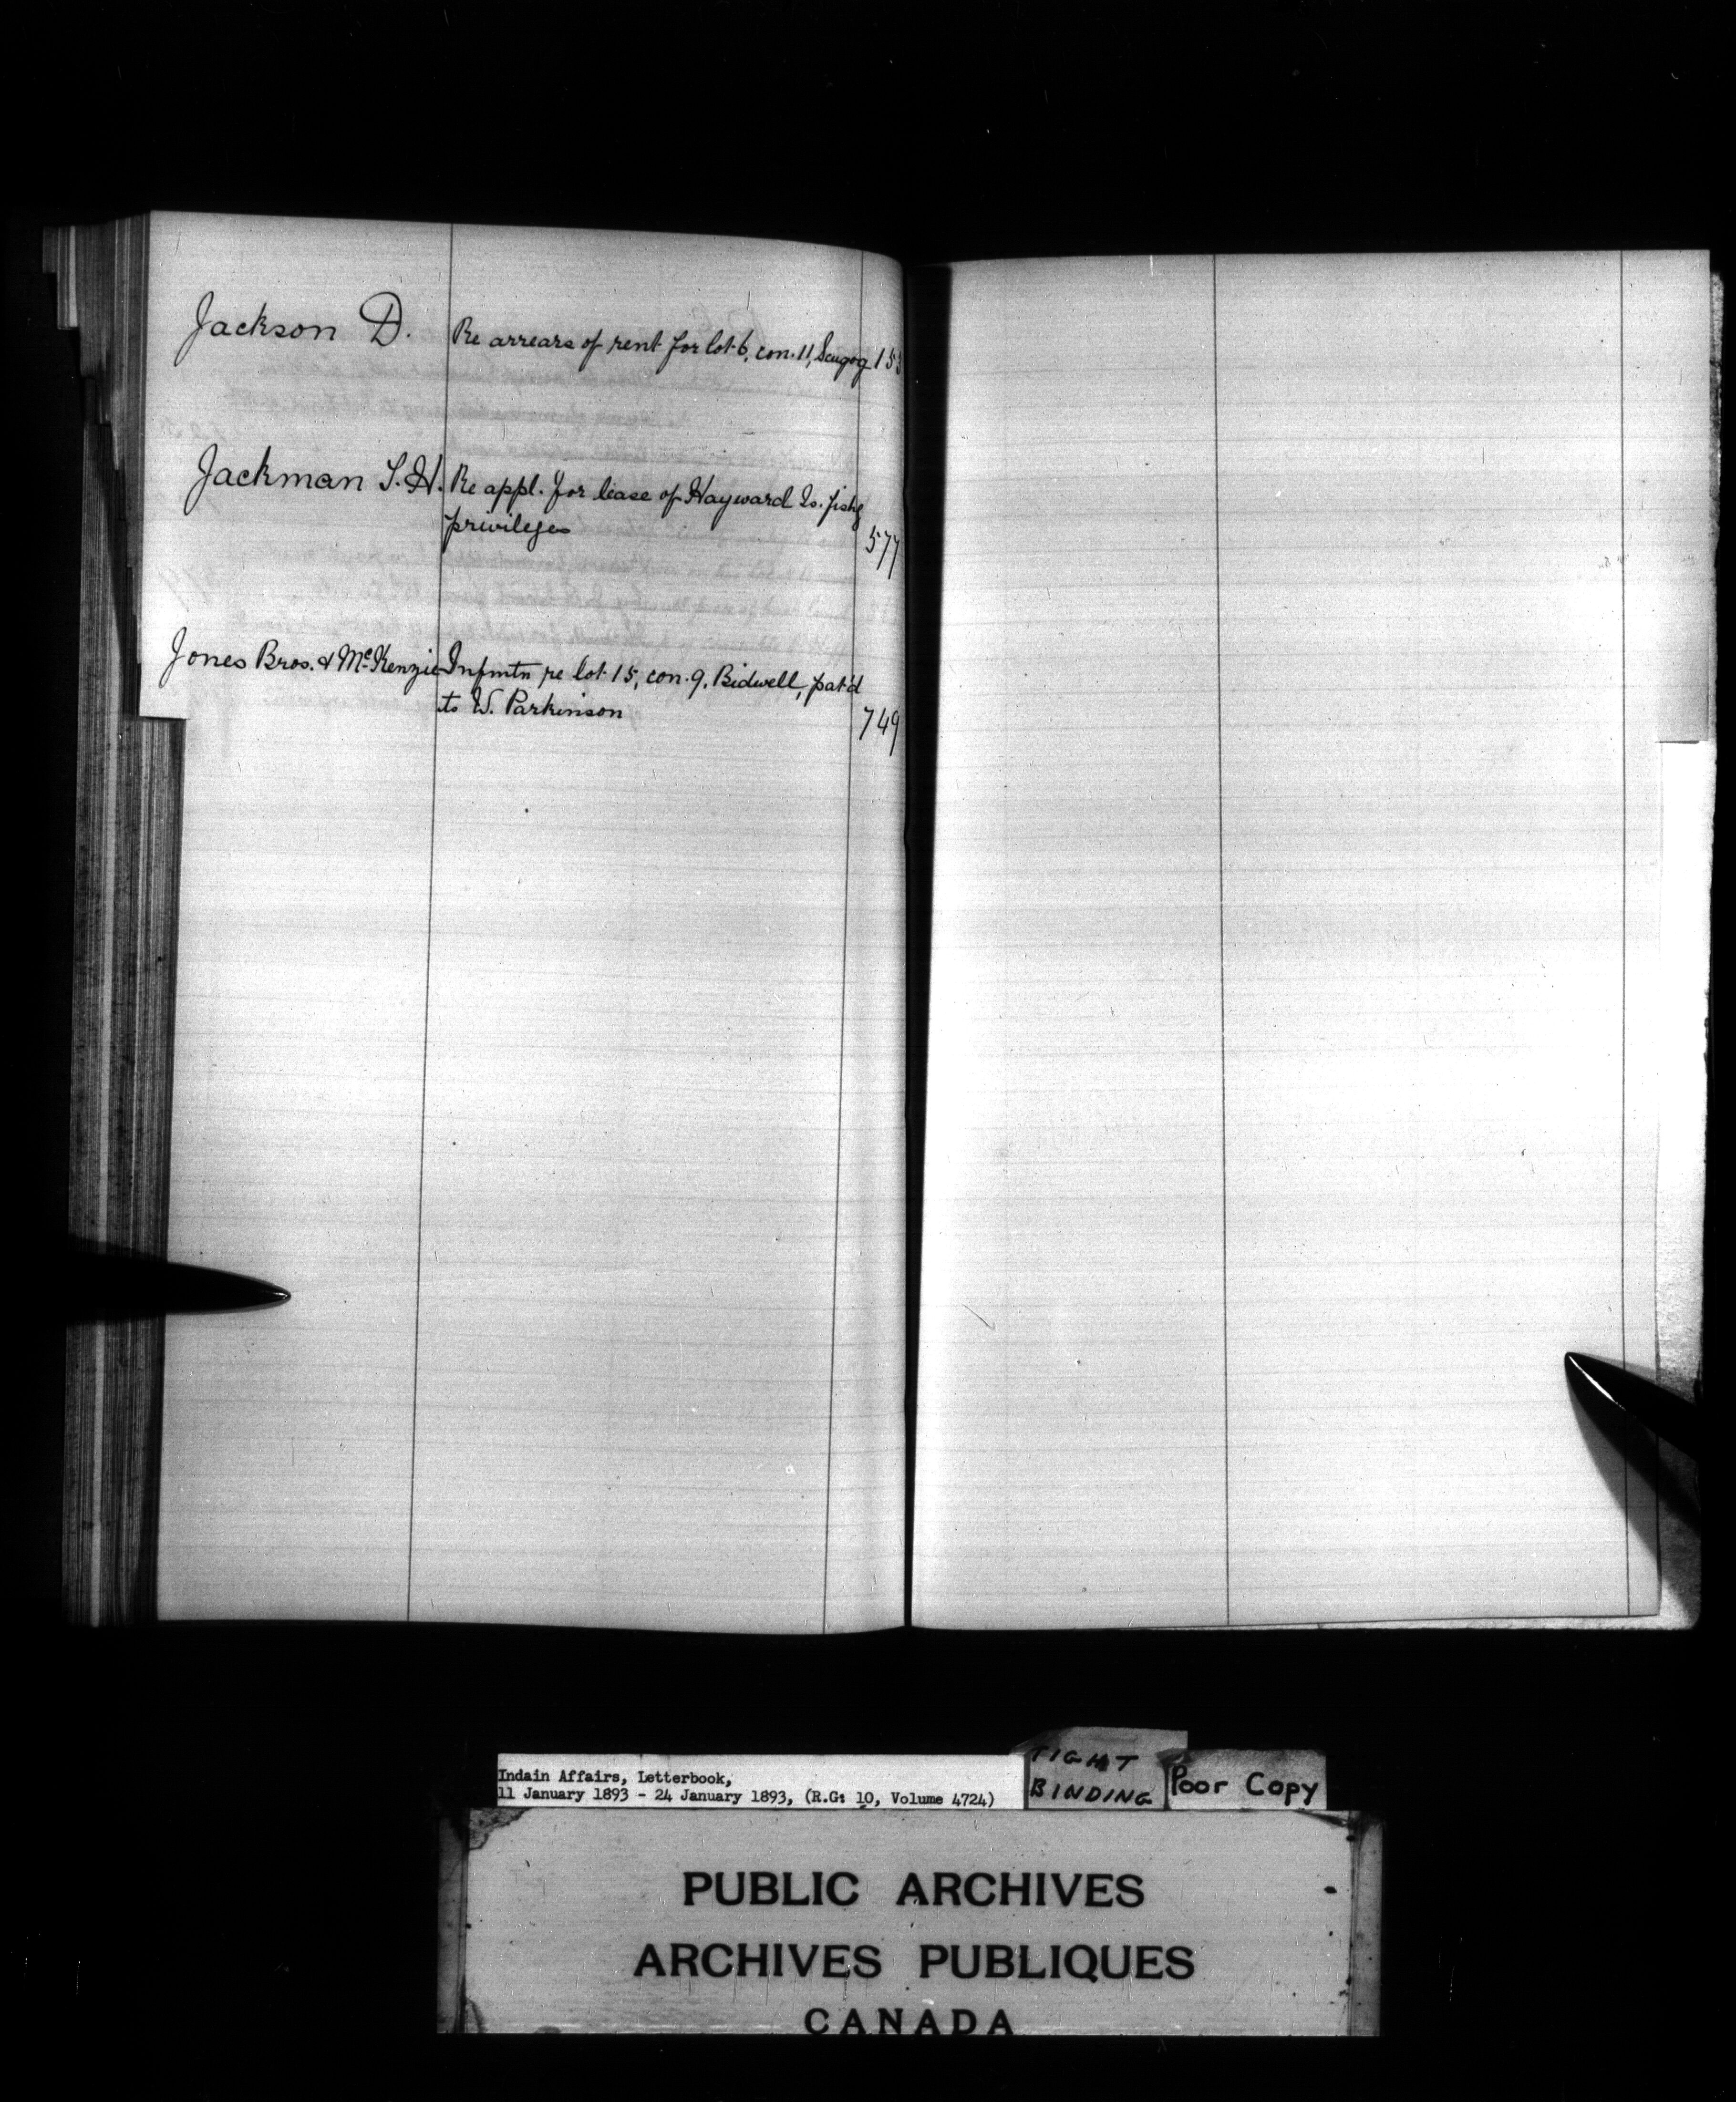 Jackson D. Re arrears of rent for lot 6, con. 11, Scugog 153
Jackman S.H. Re appl. for lease of Hayward Is. fishg
privileges 577
Jones Bros. & McKenzie Infmtn re lot 15, con. 9, Bidwell, pat'd
to W. Parkinson 749
Indain Affairs, Letterbook,
11 January 1893 - 24 January 1893, (R.G: 10, Volume 4724)
TIGHT
BINDING
Poor Copy
PUBLIC ARCHIVES
ARCHIVES PUBLIQUES
CANADA